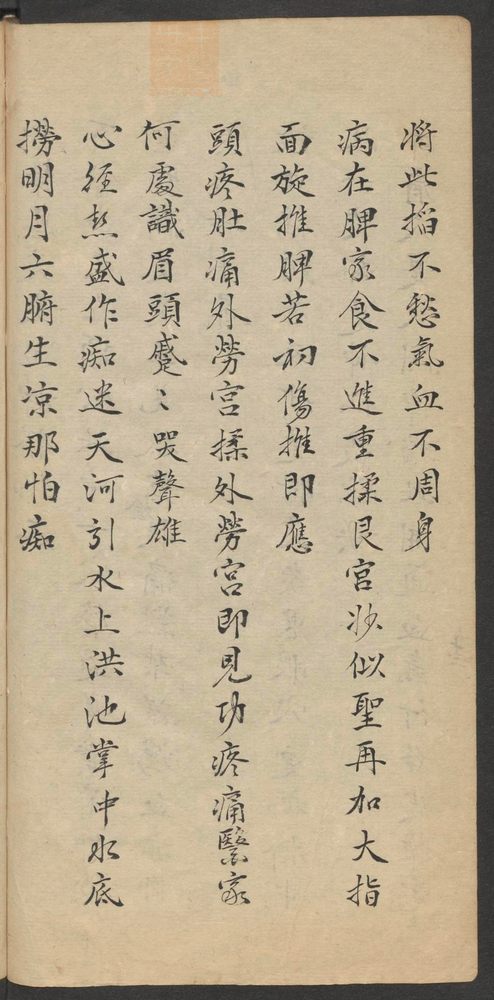 將此搯不愁氣血不周身
病在脾家食不進重揉艮宮妙似聖再加大指
面旋推脾若初傷推即應
頭疼肚痛外勞宮揉外勞宮即見功疼痛醫家
何處識眉頭蹙〻哭聲雄
心經熱盛作痴迷天河引水上洪池掌中水底
撈明月六腑生凉那怕痴